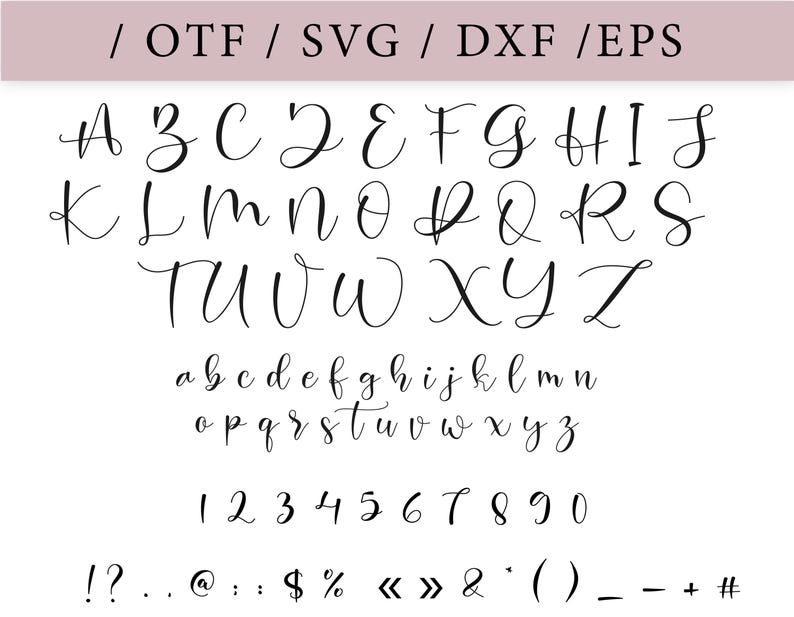 / OTF / SVG / DXF /EPS
A B C D E F G H I J
K L M N O P Q R S
T U V W X Y Z
a b c d e f g h i j k l m n
o p q r s t u v w x y z
1 2 3 4 5 6 7 8 9 0
! ? . . @ : : $ % « » & * ( ) _ – + #